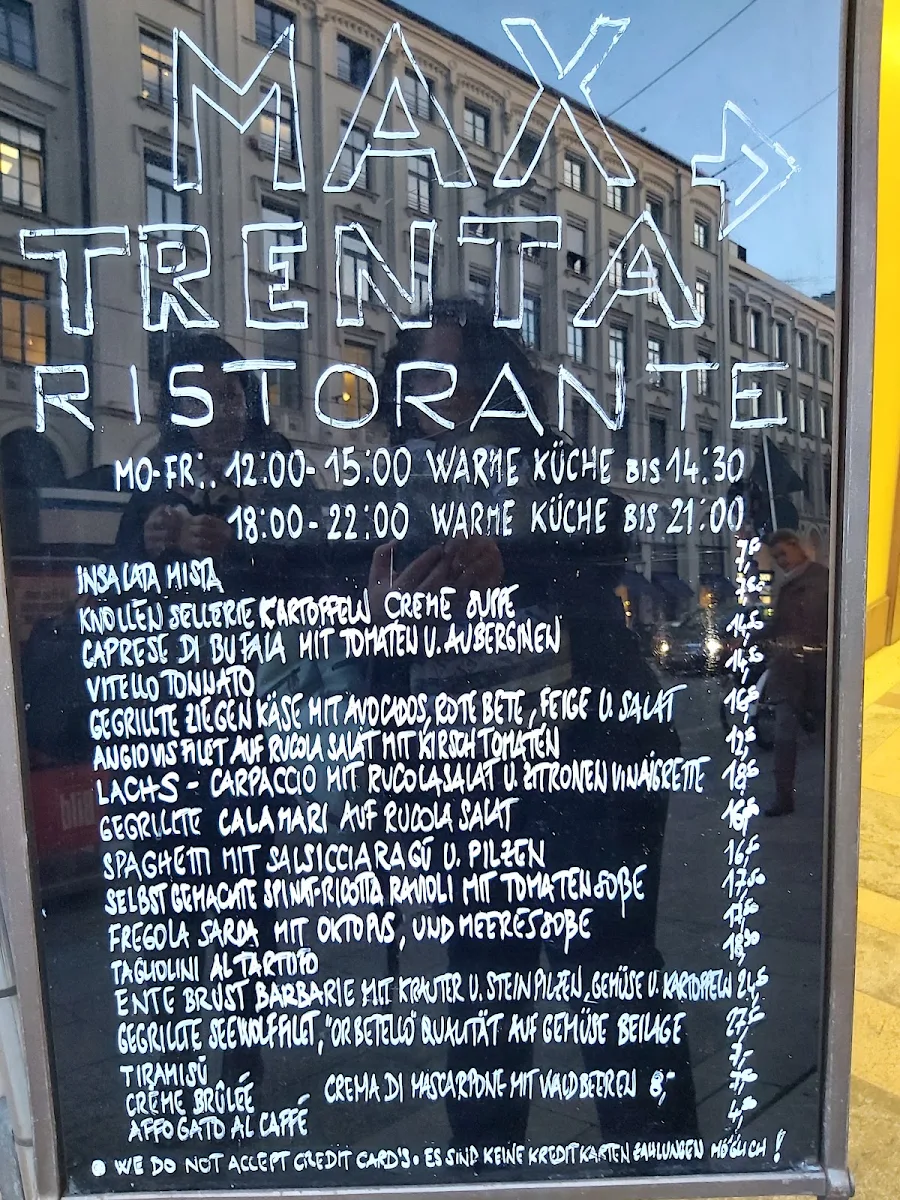 MAX →
TRENTA
RISTORANTE
MO-FR: 12:00-15:00 WARME KÜCHE BIS 14:30
18:00-22:00 WARME KÜCHE BIS 21:00
INSALATA MISTA
KNOLLEN SELLERIE KARTOFFELN CREME SUPPE
CAPRESE DI BUFALA MIT TOMATEN U. AUBERGINEN
VITELLO TONNATO
GEGRILLTE ZIEGENKÄSE MIT AVOCADOS, ROTE BETE, FEIGE U. SALAT
ANGIOVIS FILET AUF RUCOLA SALAT MIT KIRSCHTOMATEN
LACHS - CARPACCIO MIT RUCOLASALAT U. ZITRONEN VINAIGRETTE
GEGRILLTE CALAMARI AUF RUCOLA SALAT
SPAGHETTI MIT SALSICCIARAGÚ U. PILZEN
SELBST GEMACHTE SPINAT-RICOTTA RAVIOLI MIT TOMATENSOßE
FREGOLA SARDA MIT OKTOPUS, UND MEERESSOßE
TAGLIOLINI AL TARTUFO
ENTE BRUST BARBARIE MIT KRÄUTER U. STEINPILZEN, GEMÜSE U. KARTOFFELN
GEGRILLTE SEEWOLFFILET, "ORBETELLO" QUALITÄT AUF GEMÜSE BEILAGE
TIRAMISÚ
CRÉME BRÛLÉE CREMA DI MASCARPONE MIT WALDBEEREN 8,-
AFFOGATO AL CAFFÉ
• WE DO NOT ACCEPT CREDIT CARD'S • ES SIND KEINE KREDITKARTEN ZAHLUNGEN MÖGLICH!